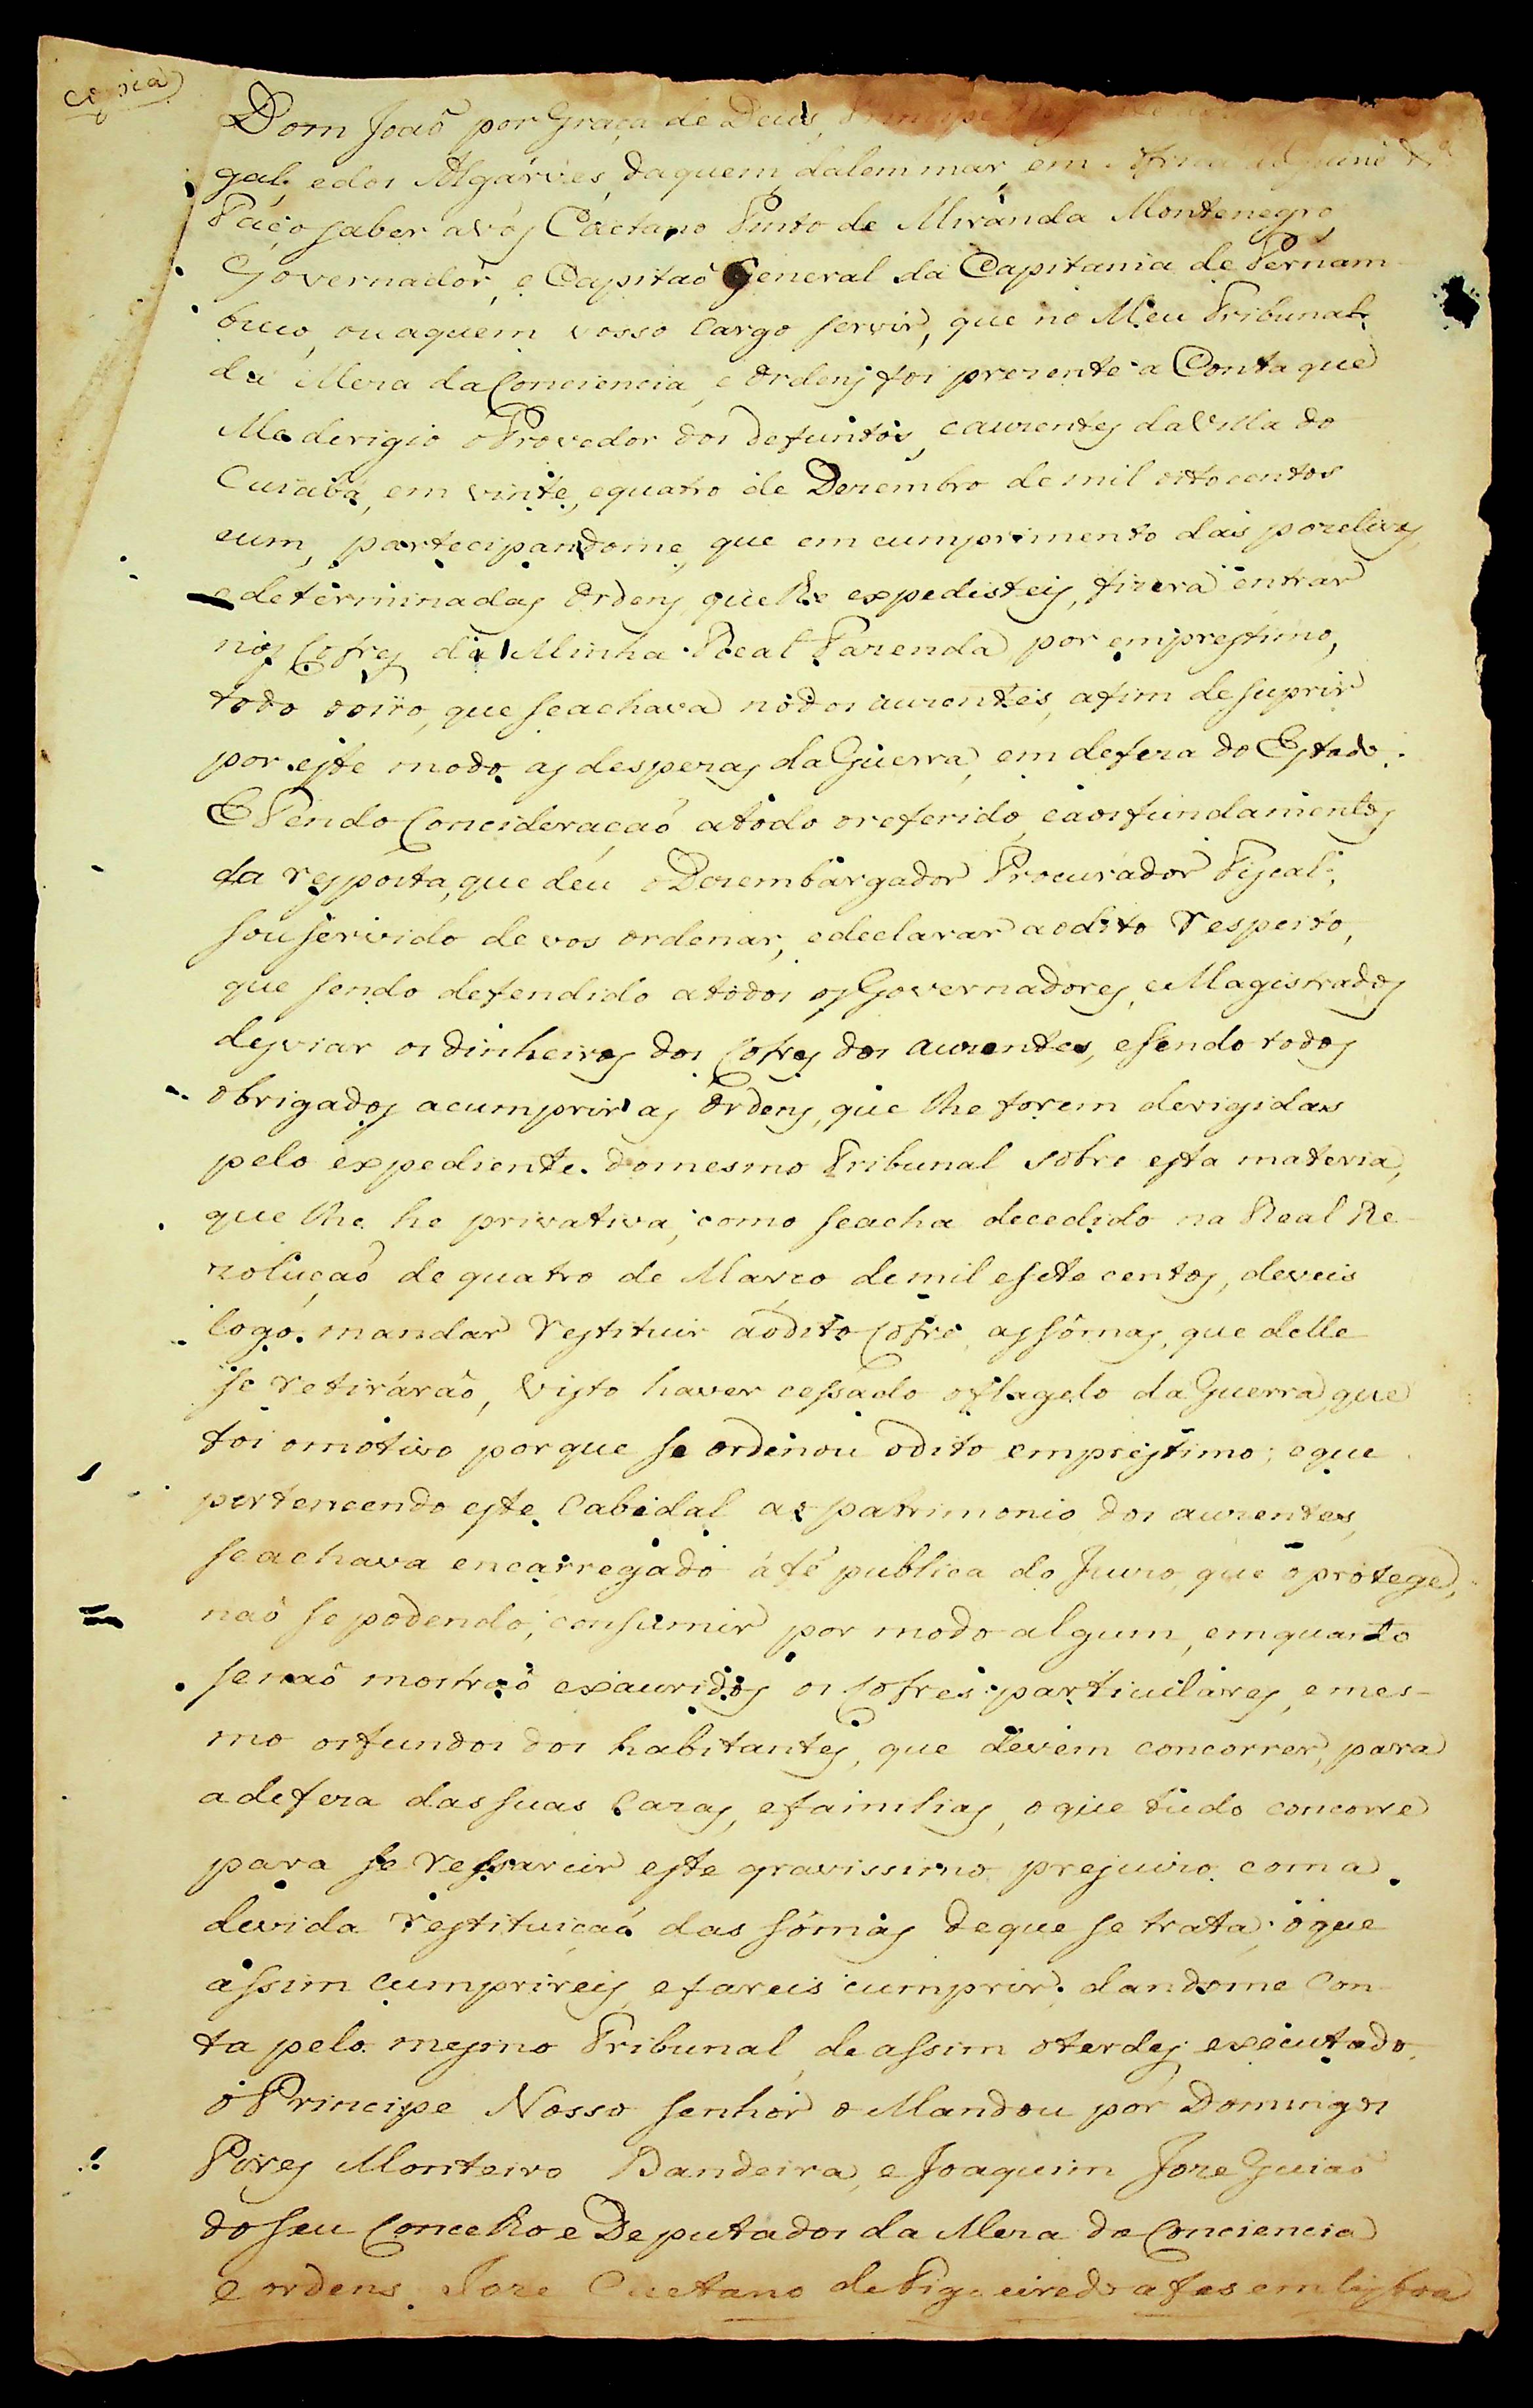 Copia
Dom Joaõ por Graça de Deus, Principe
gal, e dos Algárves, daquem, dalem mar, em Africa de Guiné &ª
Faço saber a vós Caetano Pinto de Miranda Montenegro
Governador, e Capitaõ General da Capitania de Pernam-
buco, ou aquem vosso Cargo servir, que no Meu Tribunal
da Meza da Conciencia, e Ordens foi prezente a Conta que
Me derigio o Provedor dos Defuntos, e auzentes da Villa do
Cuiabá, em vinte, e quatro de Dezembro de mil oitocentos
e um, partecipandome, que em cumprimento das pozetivas,
e determinadas Ordens, que lhe expedisteis, fizera entrar
nos Cofres da Minha Real Fazenda por emprestimo,
todo o oiro, que se achava no dos auzentes, a fim de suprir
por este modo as despezas da Guerra, em defeza do Estado:
E Tendo Concideraçaõ a todo o referido, e aos fundamentos
da resposta, que deu o Dezembargador Procurador Fiscal;
sou servido de vos ordenar, e declarar ao dito respeito,
que sendo defendido a todos os Governadores, e Magistrados
desviar os dinheiros dos Cofres dos auzentes, e sendo todos
obrigados a cumprir as Ordens, que lhe forem derigidas
pelo expediente do mesmo Tribunal sobre esta materia,
que lhe he privativa, como se acha decedido na Real Re-
zoluçaõ de quatro de Março de mil e sete centos, deveis
logo mandar restituir ao dito Cofre, as sômas, que delle
se retiráraõ, visto haver cessado o flagelo da Guerra, que
foi o motivo porque se ordenou o dito emprestimo; e que
pertencendo este Cabedal ao patrimonio dos auzentes,
se achava encarregado á fé publica do Juizo, que o protege,
naõ se podendo, consumir por modo algum, emquanto
se naõ mostraõ exauridos os Cofres particulares, e mes-
mo os fundos dos habitantes, que devem concorrer, para
a defeza das suas Cazas, e familias, o que tudo concorre
para se ressarcir este gravissimo prejuizo com a
devida restituiçaõ das sômas de que se trata; o que
assim cumprireis, e fareis cumprir; dandome Con-
ta pelo mesmo Tribunal, de assim o terdes executado.
O Principe Nosso Senhor o Mandou por Domingos
Pires Monteiro Bandeira, e Joaquim Joze Guiaõ
do seu Concelho e Deputados da Meza da Conciencia
e ordens. Joze Caetano de Figueiredo a fes em Lisboa